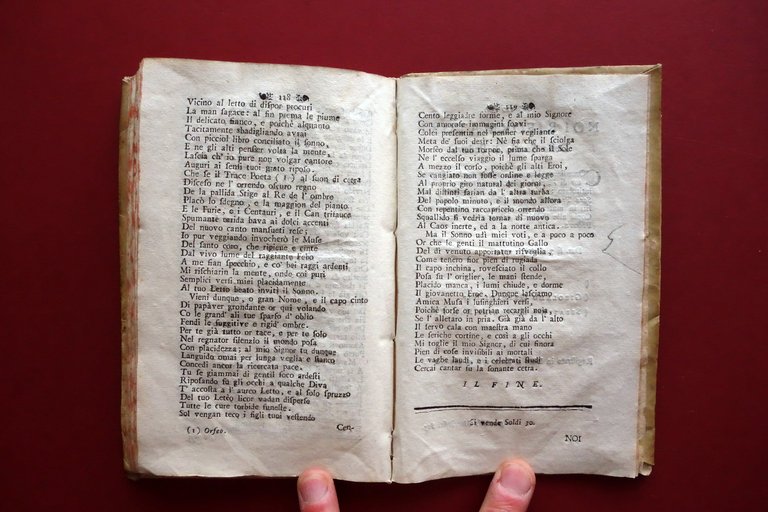 118
Vicino al letto di dispor procuri
La man sagace: al fin prema le piume
Il delicato fianco, e poichè alquanto
Tacitamente sbadigliando avrai
Con picciol libro conciliato il sonno,
E ne gli alti pensier volta la mente,
Lascia ch' io pure non volgar cantore
Auguri ai sensi tuoi grato riposo.
Che se il Trace Poeta (1) al suon di cetra
Disceso ne l' orrendo oscuro regno
De la pallida Stige al Re de l' ombre
Placò lo sdegno, e la maggion del pianto
E le Furie, e i Centauri, e il Can trifauce
Spumante orrida bava ai dolci accenti
Del nuovo canto mansueti rese;
Io pur veggiando invocherò le Muse
Del santo coro, che rigiene e cinte
Dal vivo lume del raggiante Febo
A me sian specchio, e co' bei raggi ardenti
Mi rischiarin la mente, ondo coi puri
Semplici versi miei placidamente
Al tuo Letto beato inviti il Sonno.
Vieni dunque, o gran Nome, e il capo cinto
Di papaver grondante or qui volando
Co le grand' ali tue sparso d' oblio
Fendi le fuggitive e rigid' ombre.
Per te già tutto or tace, e per te solo
Nel regnator silenzio il mondo posa
Con placidezza; al mio Signor tu dunque
Languido omai per lunga veglia e stanco
Concedi ancor la ricercata pace.
Tu se giammai di gentil foco ardesti
Riposando fu gli occhi a qualche Diva
T' accosta a l' aureo Letto, e al solo spruzzo
Del tuo Letèo licor vadan disperse
Tutte le cure torbide funeste.
Sol vengan teco i figli tuoi vestendo
(1) Orfeo.
Cen-
119
Cento leggiadre forme, e al mio Signore
Con amorose immagini soavi
Colei presentin nel pensier vegliante
Meta de' suoi desir: Nè fia che il sciolga
Morfèo dal tuo sopor, prima che il Sole
Ne l' eccelso viaggio il lume sparga
A mezzo il corso, poichè gli alti Eroi,
Se cangiato non fosse ordine e legge
Al proprio giro natural dei giorni,
Mal distinti sarian da l' altra turba
Del popolo minuto, e il mondo allora
Con repentino raccapriccio orrendo
Squallido si vedria tornar di nuovo
Al Caos inerte, ed a la notte antica.
Ma il Sonno udì miei voti, e a poco a poco
Or che le genti il mattutino Gallo
Del dì venuto apportator risveglia,
Come tenero fior pien di rugiada
Il capo inchina, rovesciato il collo
Posa su l' origlier, le mani stende,
Placido manca, i lumi chiude, e dorme
Il giovanetto Eroe. Dunque lasciamo
Amica Musa i lusinghieri versi,
Poichè forse or potrian recargli noja,
Se l' alletaro in pria. Già già da l' alto
Il servo cala con maestra mano
Le seriche cortine, e così a gli occhi
Mi toglie il mio Signor, di cui finora
Pien di cose invisibili ai mortali
Le vaghe laudi, e i celebrati studi
Cercai cantar su la sonante cetra.
IL FINE.
Si vende Soldi 30.
NOI